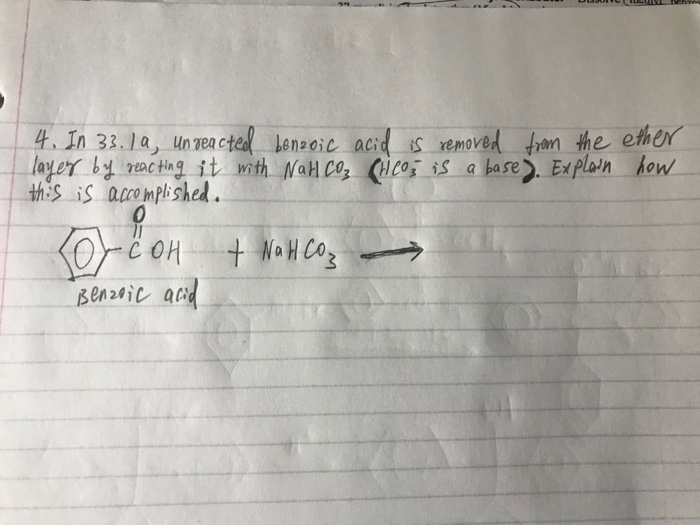 4. In 33.1a, unreacted benzoic acid is removed from the ether
layer by reacting it with NaHCO3 (HCO3- is a base). Explain how
this is accomplished.
O
C OH + NaHCO3 →
Benzoic acid